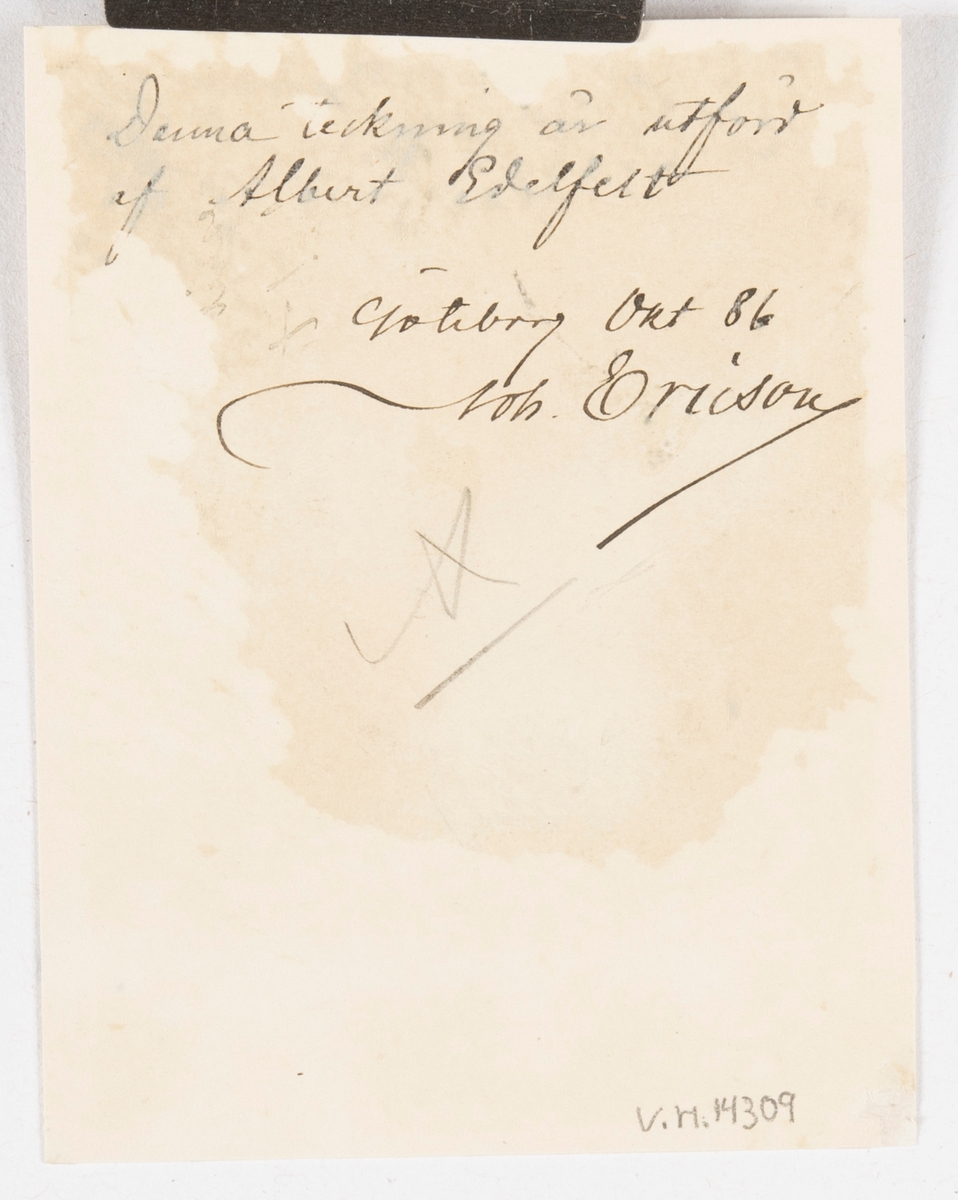 Denna teckning är utförd
af Albert Edelfelt
Göteborg Okt 86
Joh. Ericson
A
V.H.14309